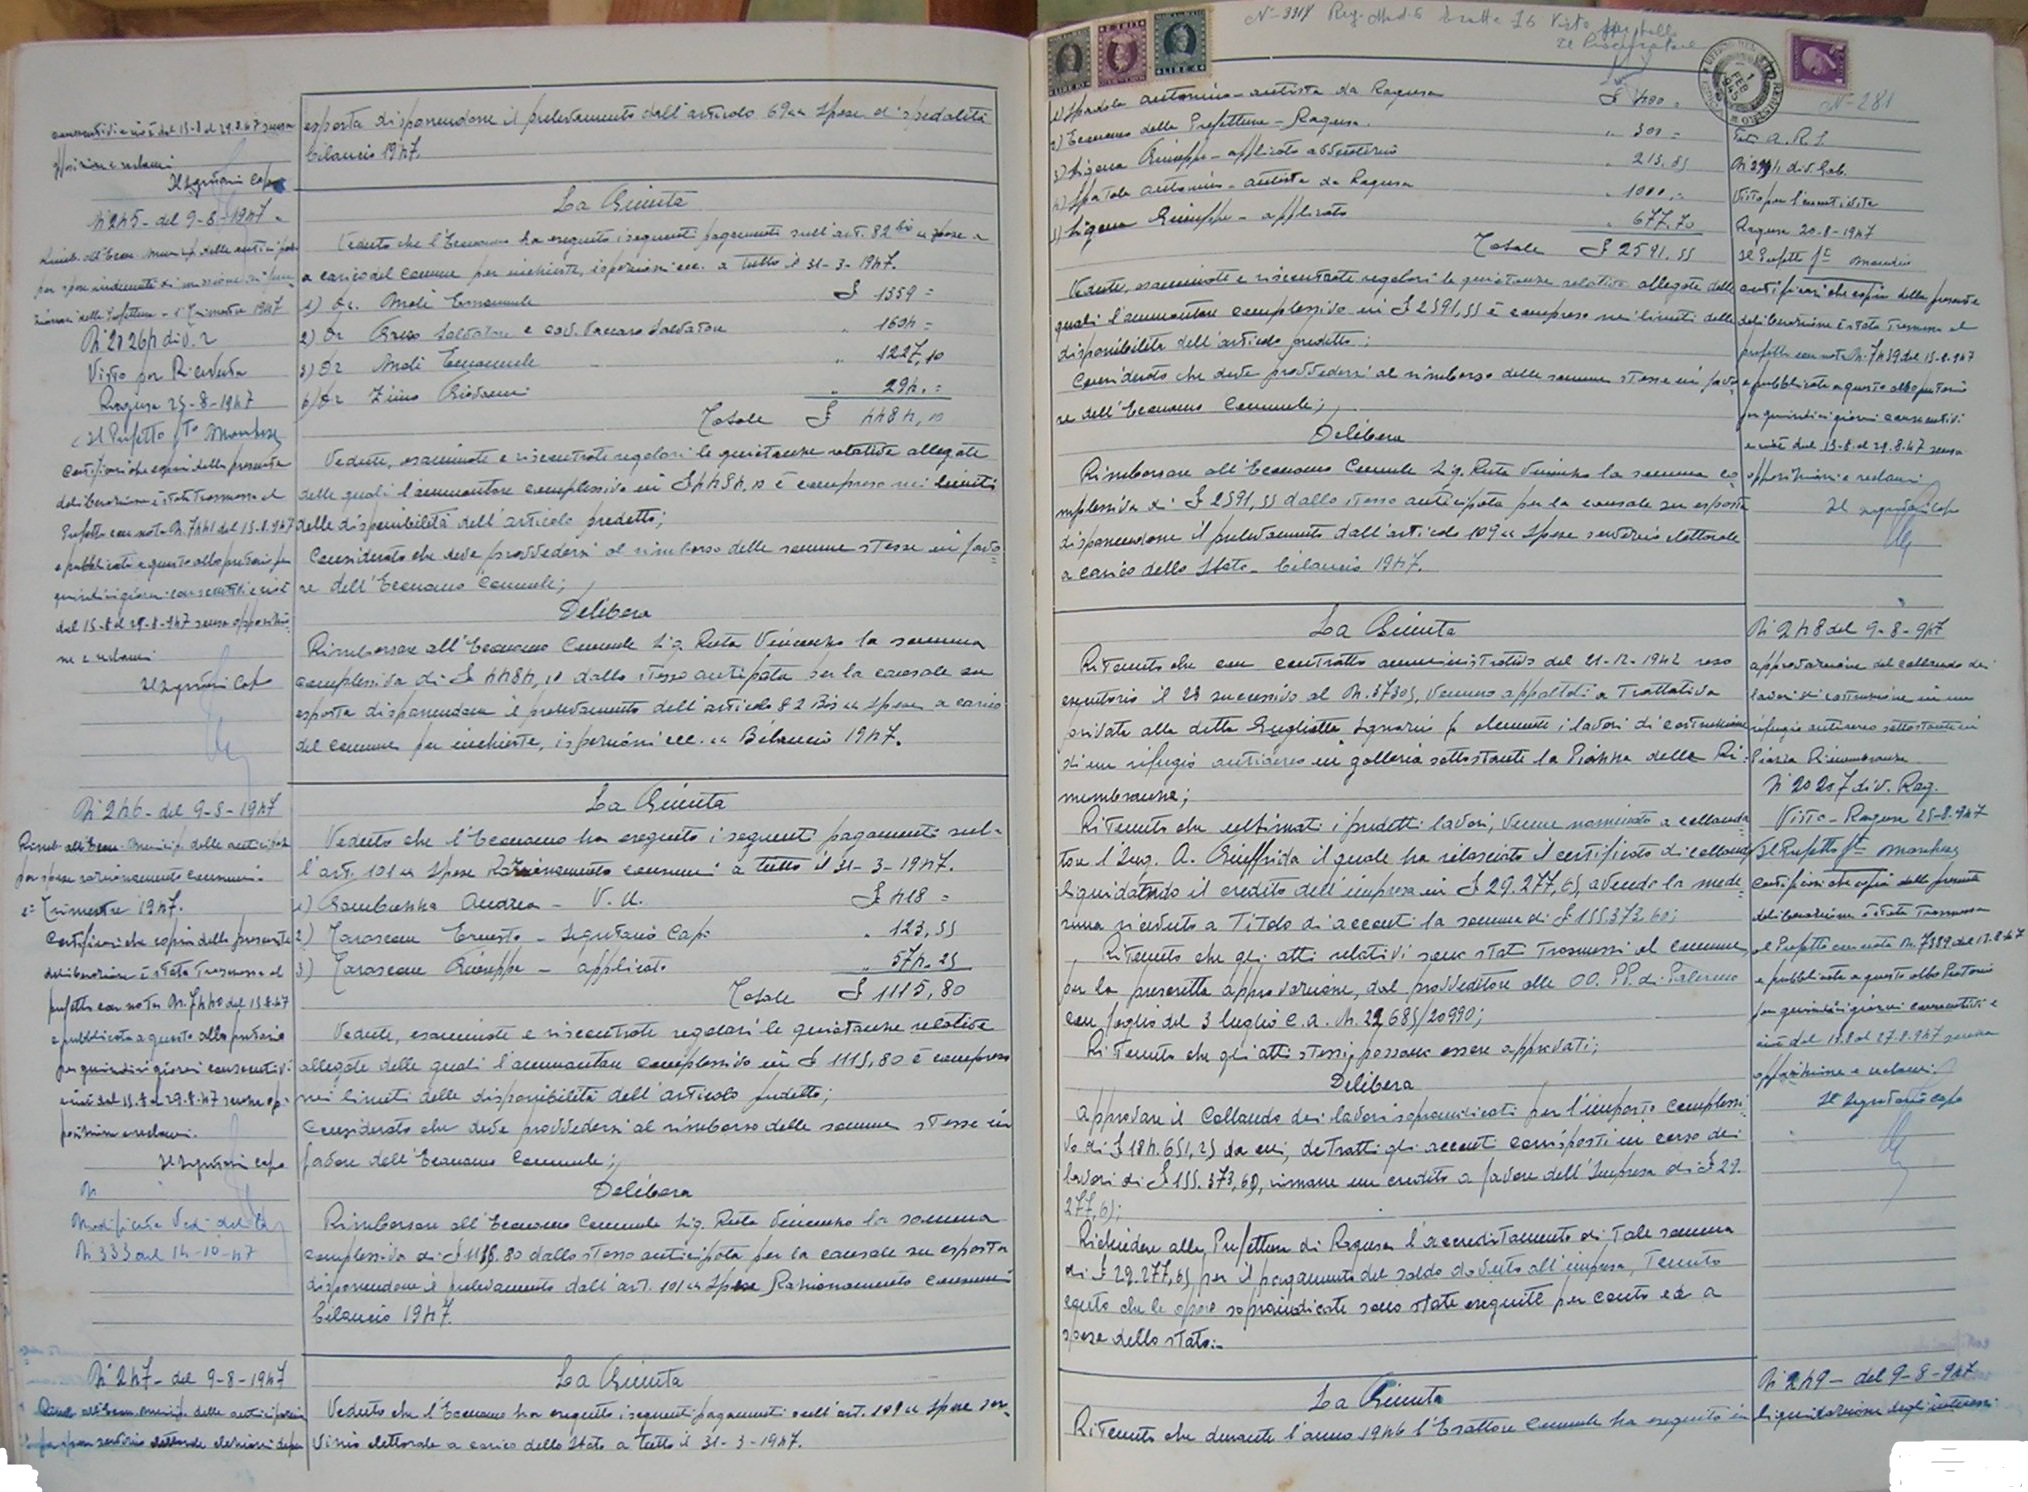 esposta disponendone il prelevamento dall'articolo 69 "Spese di spedalità
bilancio 1947.
consecutivi e cioè dal 15-8 al 29.8.47 senza
opposizioni e reclami
Il Segretario Capo
N° 245 - del 9-8-1947
Rimb. all'Econ. Municip. delle anticipaz.
Prefettura - 1° Trimestre 1947
N° 20264 div. 2
Visto per Ricevuta
Ragusa 25-8-1947
Il Prefetto fto
Certificasi che copia della presente
deliberazione è stata trasmessa al
Prefetto con nota N. 7441 del 15.8.947
e pubblicata a questo albo pretorio per
quindici giorni consecutivi e cioè
dal 15-8 al 29-8-947 senza opposizio-
ni e reclami
Il Segretario Capo
La Giunta
Veduto che l'Economo ha eseguito i seguenti pagamenti sull'art. 82 bis "spese a
a carico del comune per inchieste, ispezioni ecc. a tutto il 31-3-1947.
1) Dr. Modi Emanuele £ 1359 =
2) Dr Salvatore e cav. Vaccaro Salvatore " 1604 =
3) Dr Modi Emanuele " 1227,10
4) Dr Giovanni " 294. =
Totale £ 4484,10
Vedute, esaminate e riscontrate regolari le quietanze relative allegate
delle quali l'ammontare complessivo in £ 4484,10 è compreso nei limiti
delle disponibilità dell'articolo predetto;
Considerato che deve provvedersi al rimborso delle somme stesse in favo
re dell'Economo Comunale;
Delibera
Rimborsare all'Economo Comunale Sig. Ruta Vincenzo la somma
complessiva di £ 4484,10 dallo stesso anticipata per la causale su
esposta disponendone il prelevamento dall'articolo 82 bis "Spese a carico
del comune per inchieste, ispezioni ecc. " Bilancio 1947.
N° 246 - del 9-8-1947
Rimb. all'Econ. Municip. delle anticipaz.
per spese razionamento consumi.
1° Trimestre 1947.
Certificasi che copia della presente
deliberazione è stata trasmessa al
prefetto con nota N. 7440 del 15.8.47
e pubblicata a questo albo pretorio
per quindici giorni consecutivi
e cioè dal 15.8 al 29.8.47 senza op-
posizioni e reclami.
Il Segretario Capo
N
Modificata Vedi del. G.
N° 333 del 14-10-47
La Giunta
Veduto che l'Economo ha eseguito i seguenti pagamenti sul-
l'art. 101 "Spese Razionamento consumi" a tutto il 31-3-1947.
1) Andrea - V. U. £ 418 =
2) Tarascone Ernesto - Segretario Capo " 123,55
3) Tarascone Giuseppe - applicato " 574.25
Totale £ 1115,80
Vedute, esaminate e riscontrate regolari le quietanze relative
allegate delle quali l'ammontare complessivo in £ 1115,80 è compreso
nei limiti delle disponibilità dell'articolo predetto;
Considerato che deve provvedersi al rimborso delle somme stesse in
favore dell'Economo Comunale;
Delibera
Rimborsare all'Economo Comunale Sig. Ruta Vincenzo la somma
complessiva di £ 1115.80 dallo stesso anticipata per la causale su esposta
disponendone il prelevamento dall'art. 101 "Spese Razionamento consumi
bilancio 1947.
N° 247 - del 9-8-1947
Rimb. all'Econ. Municip. delle anticipazioni
servizio elettorale elezioni
La Giunta
Veduto che l'Economo ha eseguito i seguenti pagamenti sull'art. 109 "Spese ser-
vizio elettorale a carico dello Stato a tutto il 31-3-1947.
N° 3914 Reg. Mod. 6 Visto
Il Procuratore
LIRE 4
1 FEB 1945
N° 281
1) Spadola Antonino - autista da Ragusa £ 400 =
2) Economo della Prefettura - Ragusa. " 301 =
3) Ligona Giuseppe - applicato avventizio " 213.85
4) Spadola Antonino - autista da Ragusa " 1000,=
5) Ligona Giuseppe - applicato " 677.70
Totale £ 2591.55
Vedute, esaminate e riscontrate regolari le quietanze relative allegate delle
quali l'ammontare complessivo in £ 2591,55 è compreso nei limiti delle
disponibilità dell'articolo predetto;
Considerato che deve provvedersi al rimborso delle somme stesse in favo
re dell'Economo Comunale;
Delibera
Rimborsare all'Economo Comunale Sig. Ruta Vincenzo la somma co
mplessiva di £ 2591,55 dallo stesso anticipata per la causale su esposta
disponendone il prelevamento dall'articolo 109 "Spese servizio elettorale
a carico dello Stato - bilancio 1947.
div. Gab.
Visto per l'esecutività
Ragusa 20-8-1947
Il Prefetto fto
Certificasi che copia della presente
deliberazione è stata trasmessa al
prefetto con nota N. 7439 del 15.8.947
e pubblicata a questo albo pretorio
per quindici giorni consecutivi
e cioè dal 15-8 al 29.8.47 senza
opposizioni e reclami
Il segretario capo
La Giunta
Ritenuto che con contratto amministrativo del 21-12-1942 reso
esecutorio il 28 successivo al N. 37305, vennero appaltati a trattativa
privata alla ditta Guglielmo Ignazio fu Clemente i lavori di costruzione
di un rifugio antiaereo in galleria sottostante la Piazza delle Ri-
membranze;
Ritenuto che ultimati i predetti lavori, venne nominato a collauda
tore l'Ing. A. Giuffrida il quale ha rilasciato il certificato di collaudo
liquidando il credito dell'impresa in £ 29.277,65 avendo la mede-
sima ricevuto a titolo di acconti la somma di £ 155.373,60;
Ritenuto che gli atti relativi sono stati trasmessi al comune,
per la prescritta approvazione, dal provveditore alle OO. PP. di Palermo
con foglio del 3 luglio c.a. N. 22685/20990;
Ritenuto che gli atti stessi possono essere approvati;
Delibera
Approvare il Collaudo dei lavori sopraindicati per l'importo complessi-
vo di £ 184.651,25 da cui, detratti gli acconti corrisposti in corso dei
lavori di £ 155.373,60, rimane un credito a favore dell'Impresa di £ 29.
277,65;
Richiedere alla Prefettura di Ragusa l'accreditamento di tale somma
di £ 29.277,65 per il pagamento del saldo dovuto all'impresa, tenuto
conto che le opere sopraindicate sono state eseguite per conto ed a
spese dello stato.-
N° 248 del 9-8-947
approvazione del collaudo dei
lavori di costruzione in un
rifugio antiaereo sottostante in
Piazza Rimembranze
N° 20207 div. Rag.
Visto - Ragusa 25-8-947
Il Prefetto fto
Certificasi che copia della presente
deliberazione è stata trasmessa
al Prefetto con nota N. 7389 del 13.8.47
e pubblicata a questo albo Pretorio
per quindici giorni consecutivi e
cioè dal 13.8 al 27.8.947 senza
opposizione e reclami.
Il Segretario capo
La Giunta
Ritenuto che durante l'anno 1946 l'Esattore Comunale ha eseguito in
N° 249 - del 9-8-947
liquidazione degli interessi